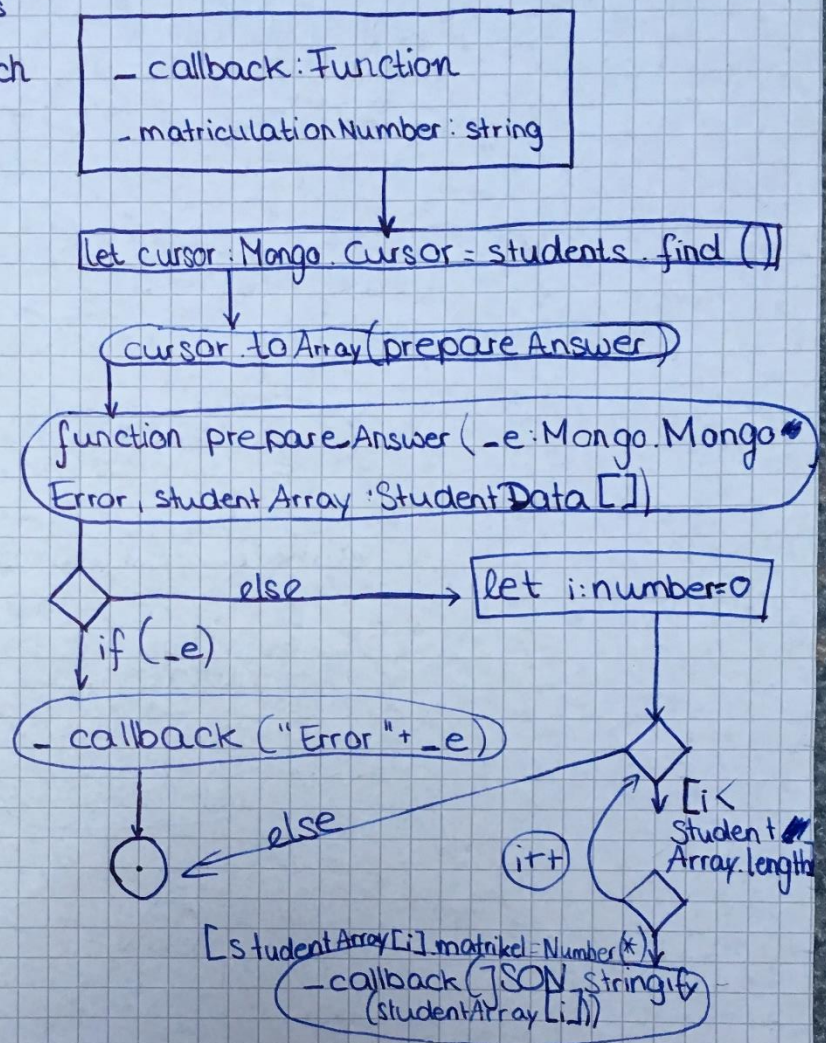 s
ch
_ callback: Function
_matriculationNumber: string
let cursor: Mongo.Cursor = students.find()
cursor.toArray(prepareAnswer)
function prepareAnswer(_e:Mongo.Mongo
Error, studentArray: StudentData[])
else
let i:number=0
if (_e)
_ callback ("Error"+ _e)
[i<
Student
Array.length
else
i++
[studentArray[i].matrikel=Number(*)
_callback(JSON.stringify
(studentArray[i]))